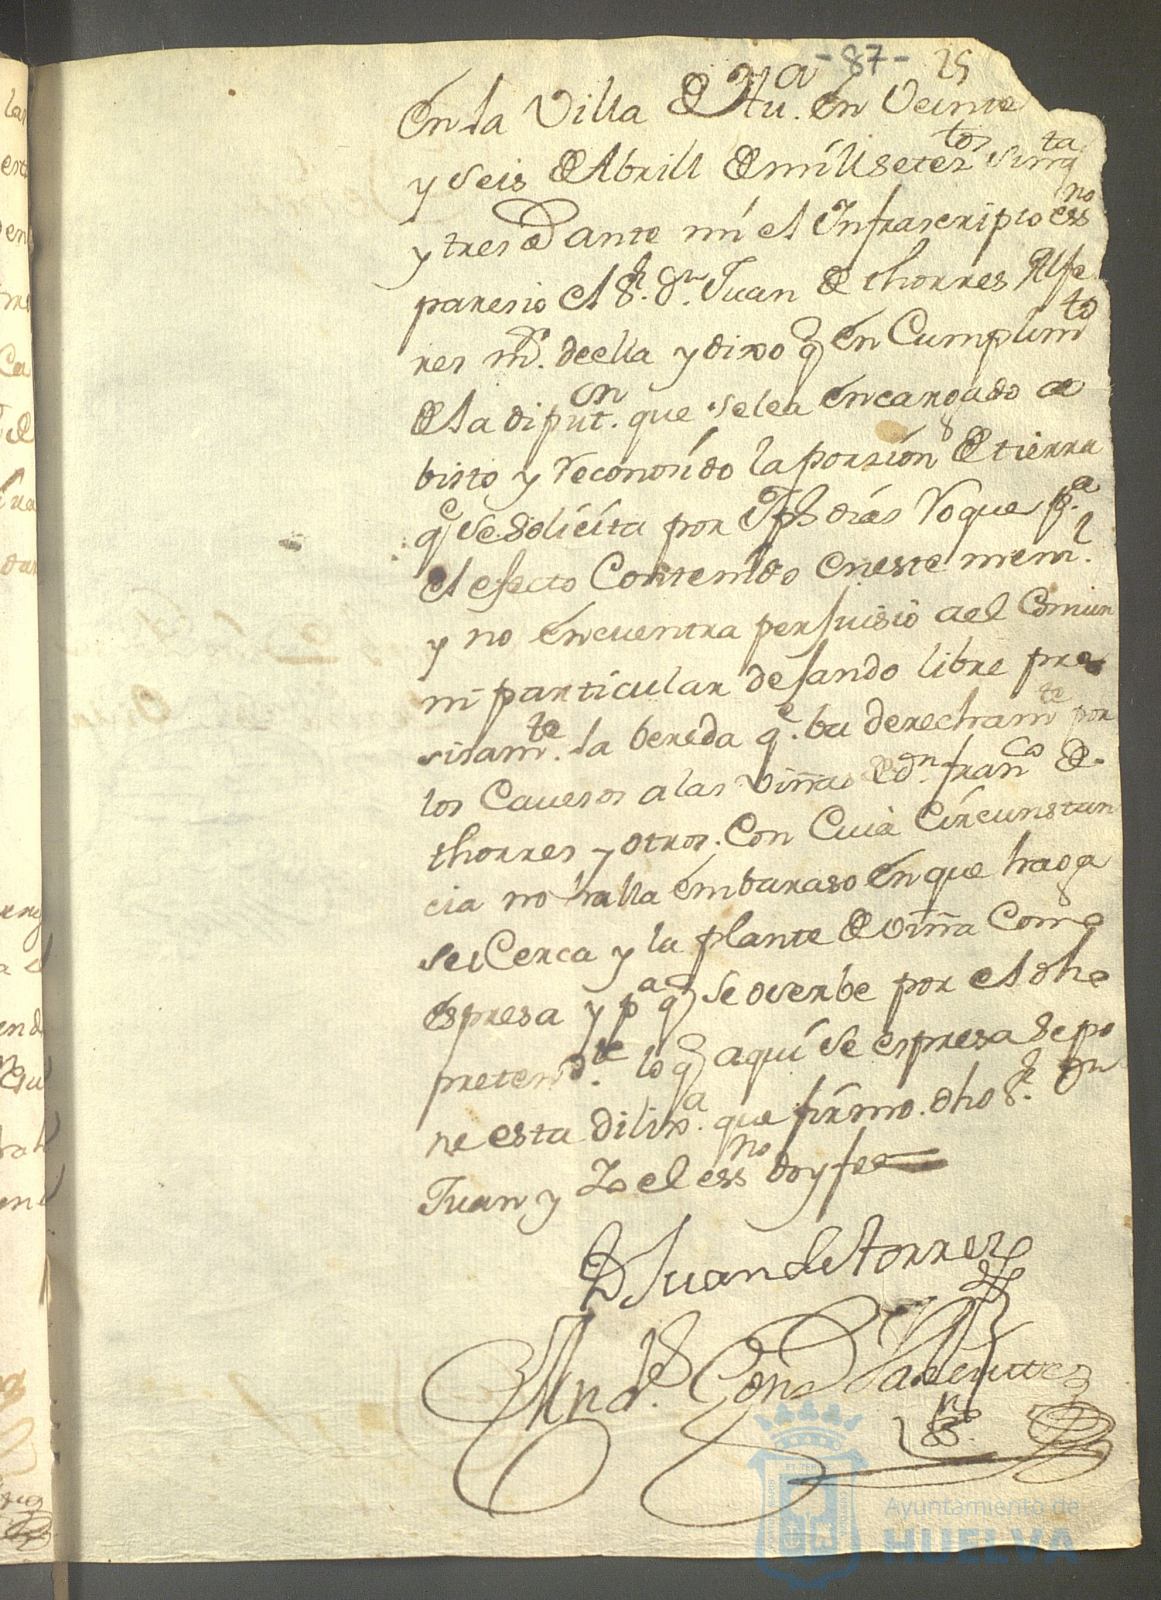 -87- 25
En la Villa de Hua. en Veinte
y seis de Abrill de mill setezos sinqta
y tres ante mi el Infrascripto essno
paresio el Sr. Dn. Juan de thorres Alfe
res mr. de ella y dixo q en Cumplimto
de la diputon. que se le a encargado a
bisto y reconosido la porsion de tierra
qe se solisita por Jph dias Roque pa.
el efecto Contenido en este meml.
y no encuentra perjuisio a el Comun
ni particular dejando libre pre
sisamte. la bereda qe. ba derechamte por
los Cavesos a las viñas de dn. franco de
thorres y otros. Con Cuia Circunstan
cia no halla embaraso en que haga
se Cerca y la plante de viña Como
espresa y pa q se overbe por el dho
pretendte. lo q aqui se espresa se po
ne esta dilixa. que firmo. dho Sr. Dn
Juan y Yo el essno doy fee
D Juan de torres
Andr. Gonz Valiente
Ayuntamiento de
HUELVA